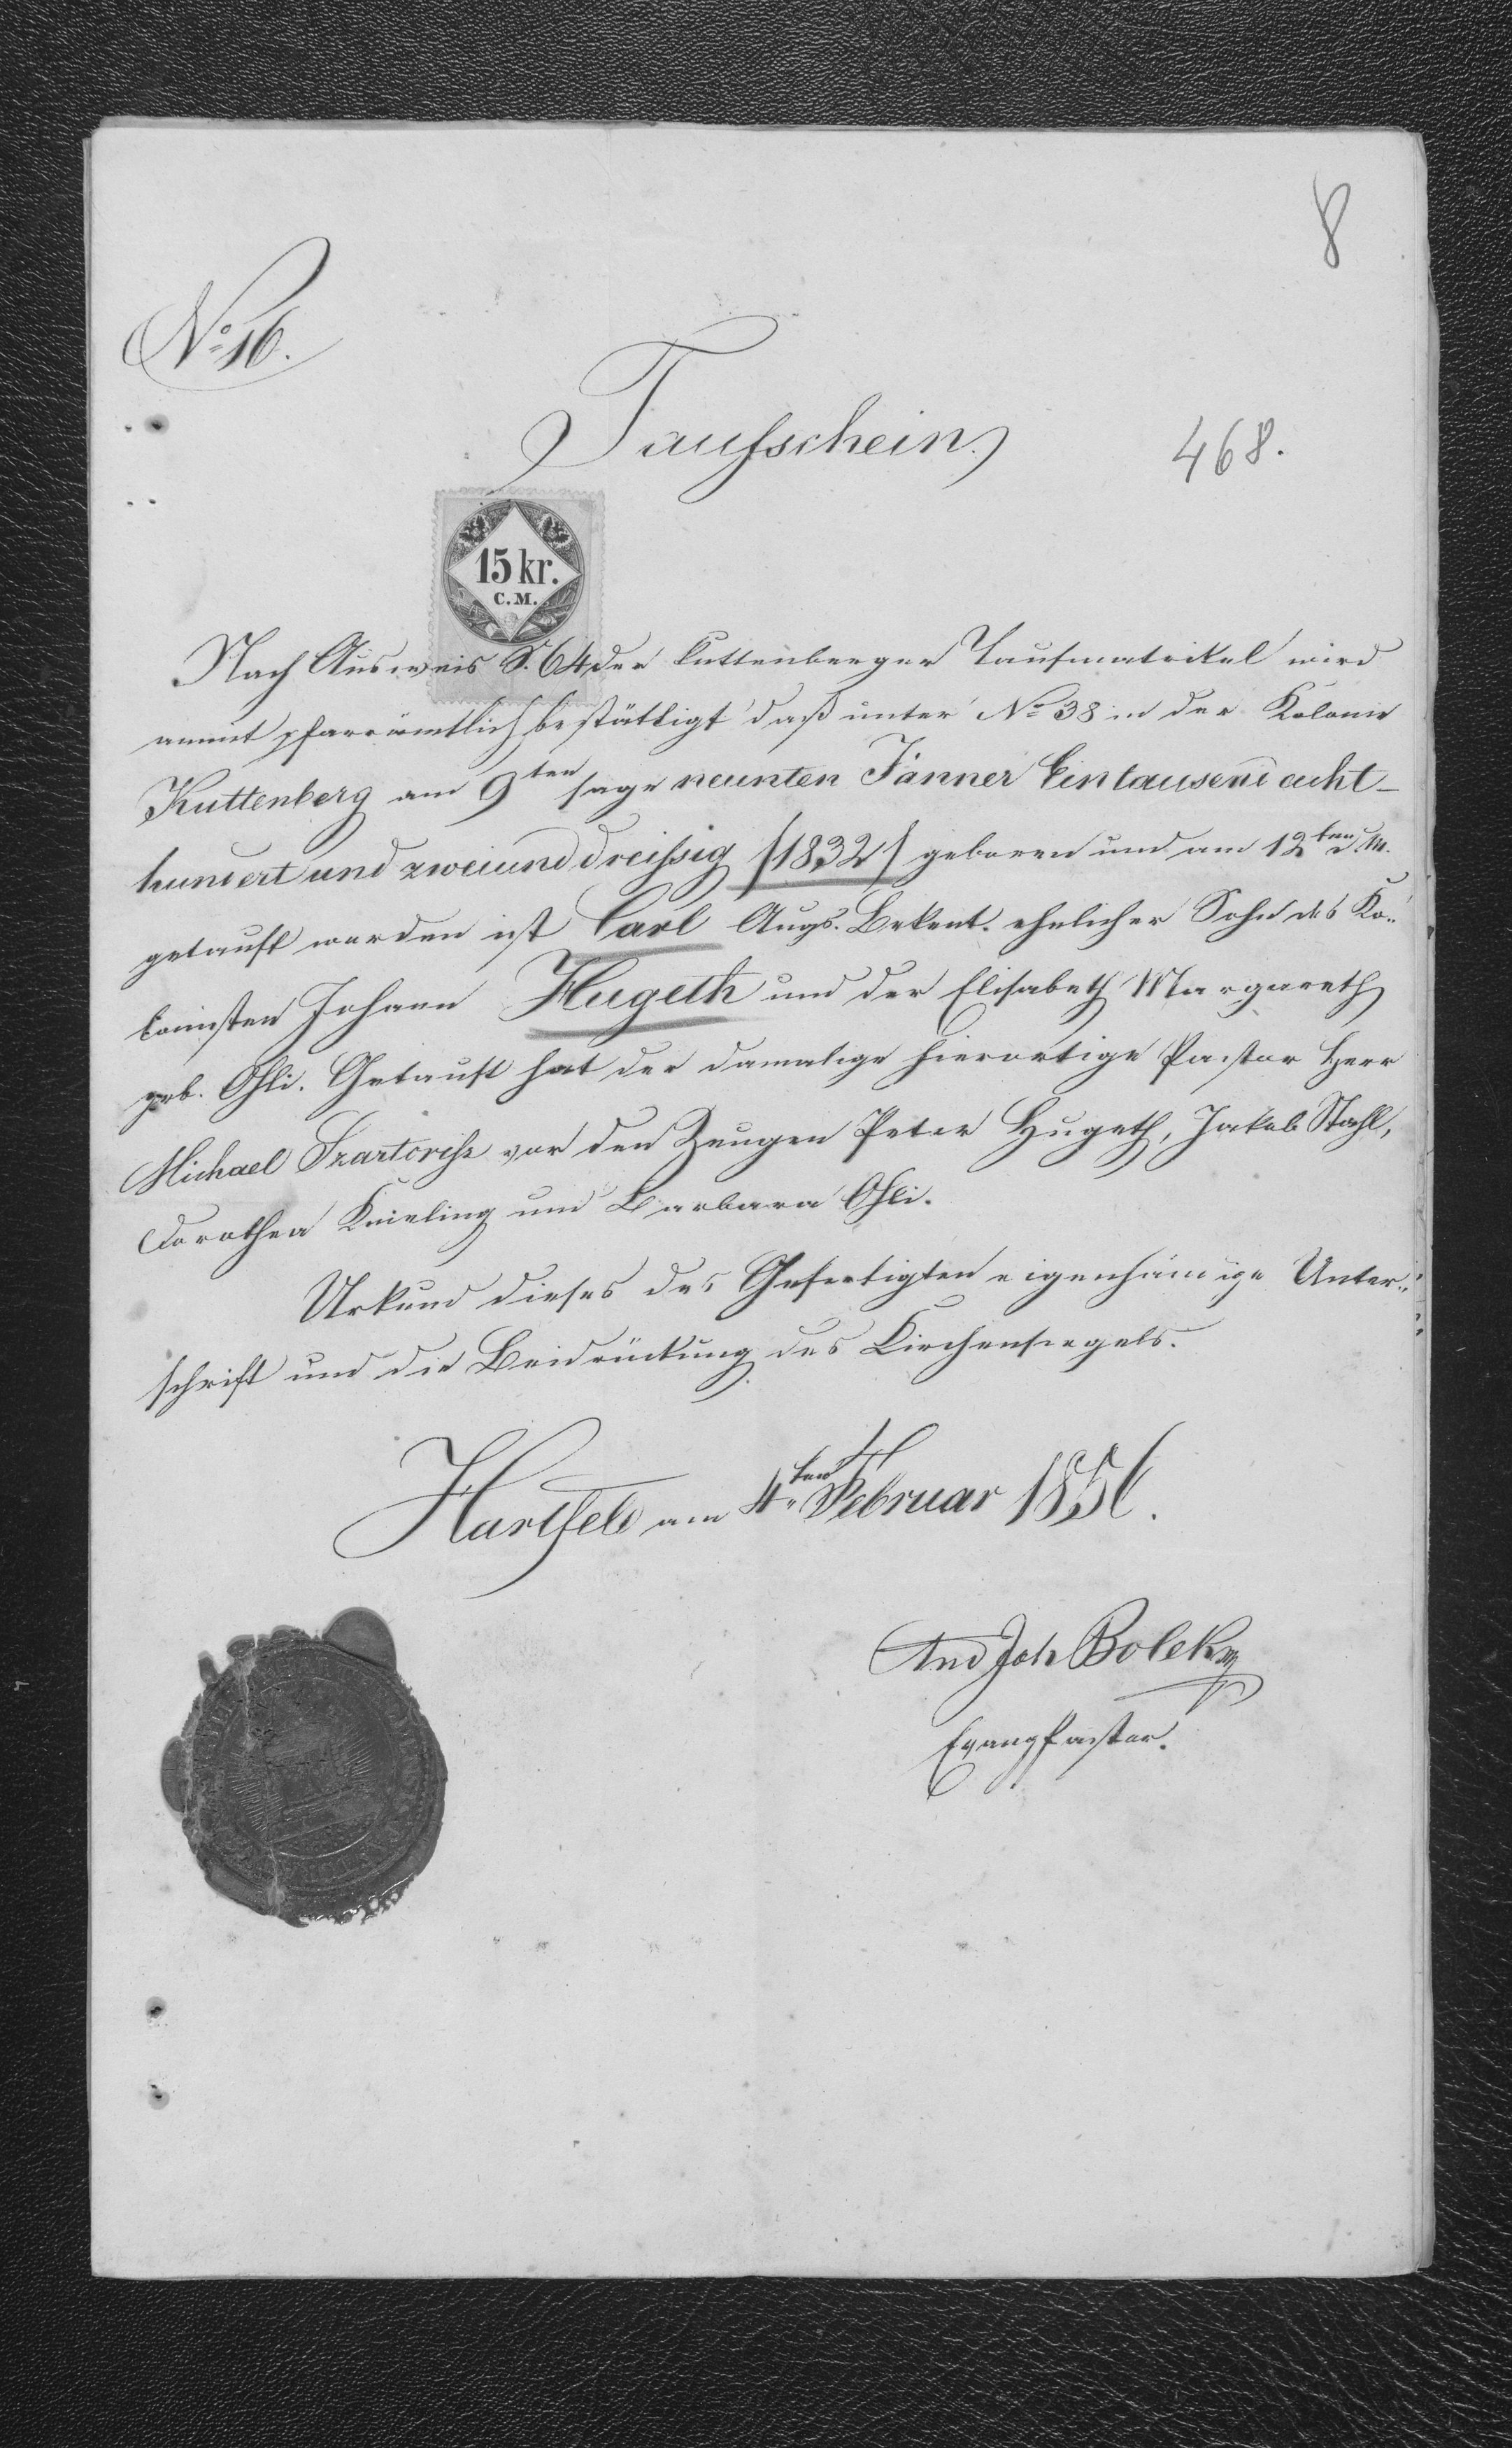 8
No 16.
Taufschein
468.
15 kr.
C.M.
Nach Ausweis S. 64 der Kuttenberger Taufmatrikel wird
anmit pfarrämtlich bestättigt daß unter No 38 in der Kolonie
Kuttenberg am 9ten sage neunten Jänner Eintausend acht-
hundert und zweiund dreissig /1832/ geboren und am 12ten d. M.
getauft worden ist Carl Augs. Bekent. ehelicher Sohn des Ko-
lonisten Johann Hugeth und der Elisabeth Margareth
geb. Ohli. Getauft hat der damalige hierortige Pastor Herr
Michael Szartorisz vor den Zeugen Peter Hugeth, Jakob Stahl,
Dorothea Knieling und Barbara Ohli.
Urkund dieses des Gefertigten eigenhändige Unter-
schrift und die Beidrückung des Kirchensiegels.
Hartfeld am 4ten Februar 1856.
And Joh Bolek
Evang Pastor.